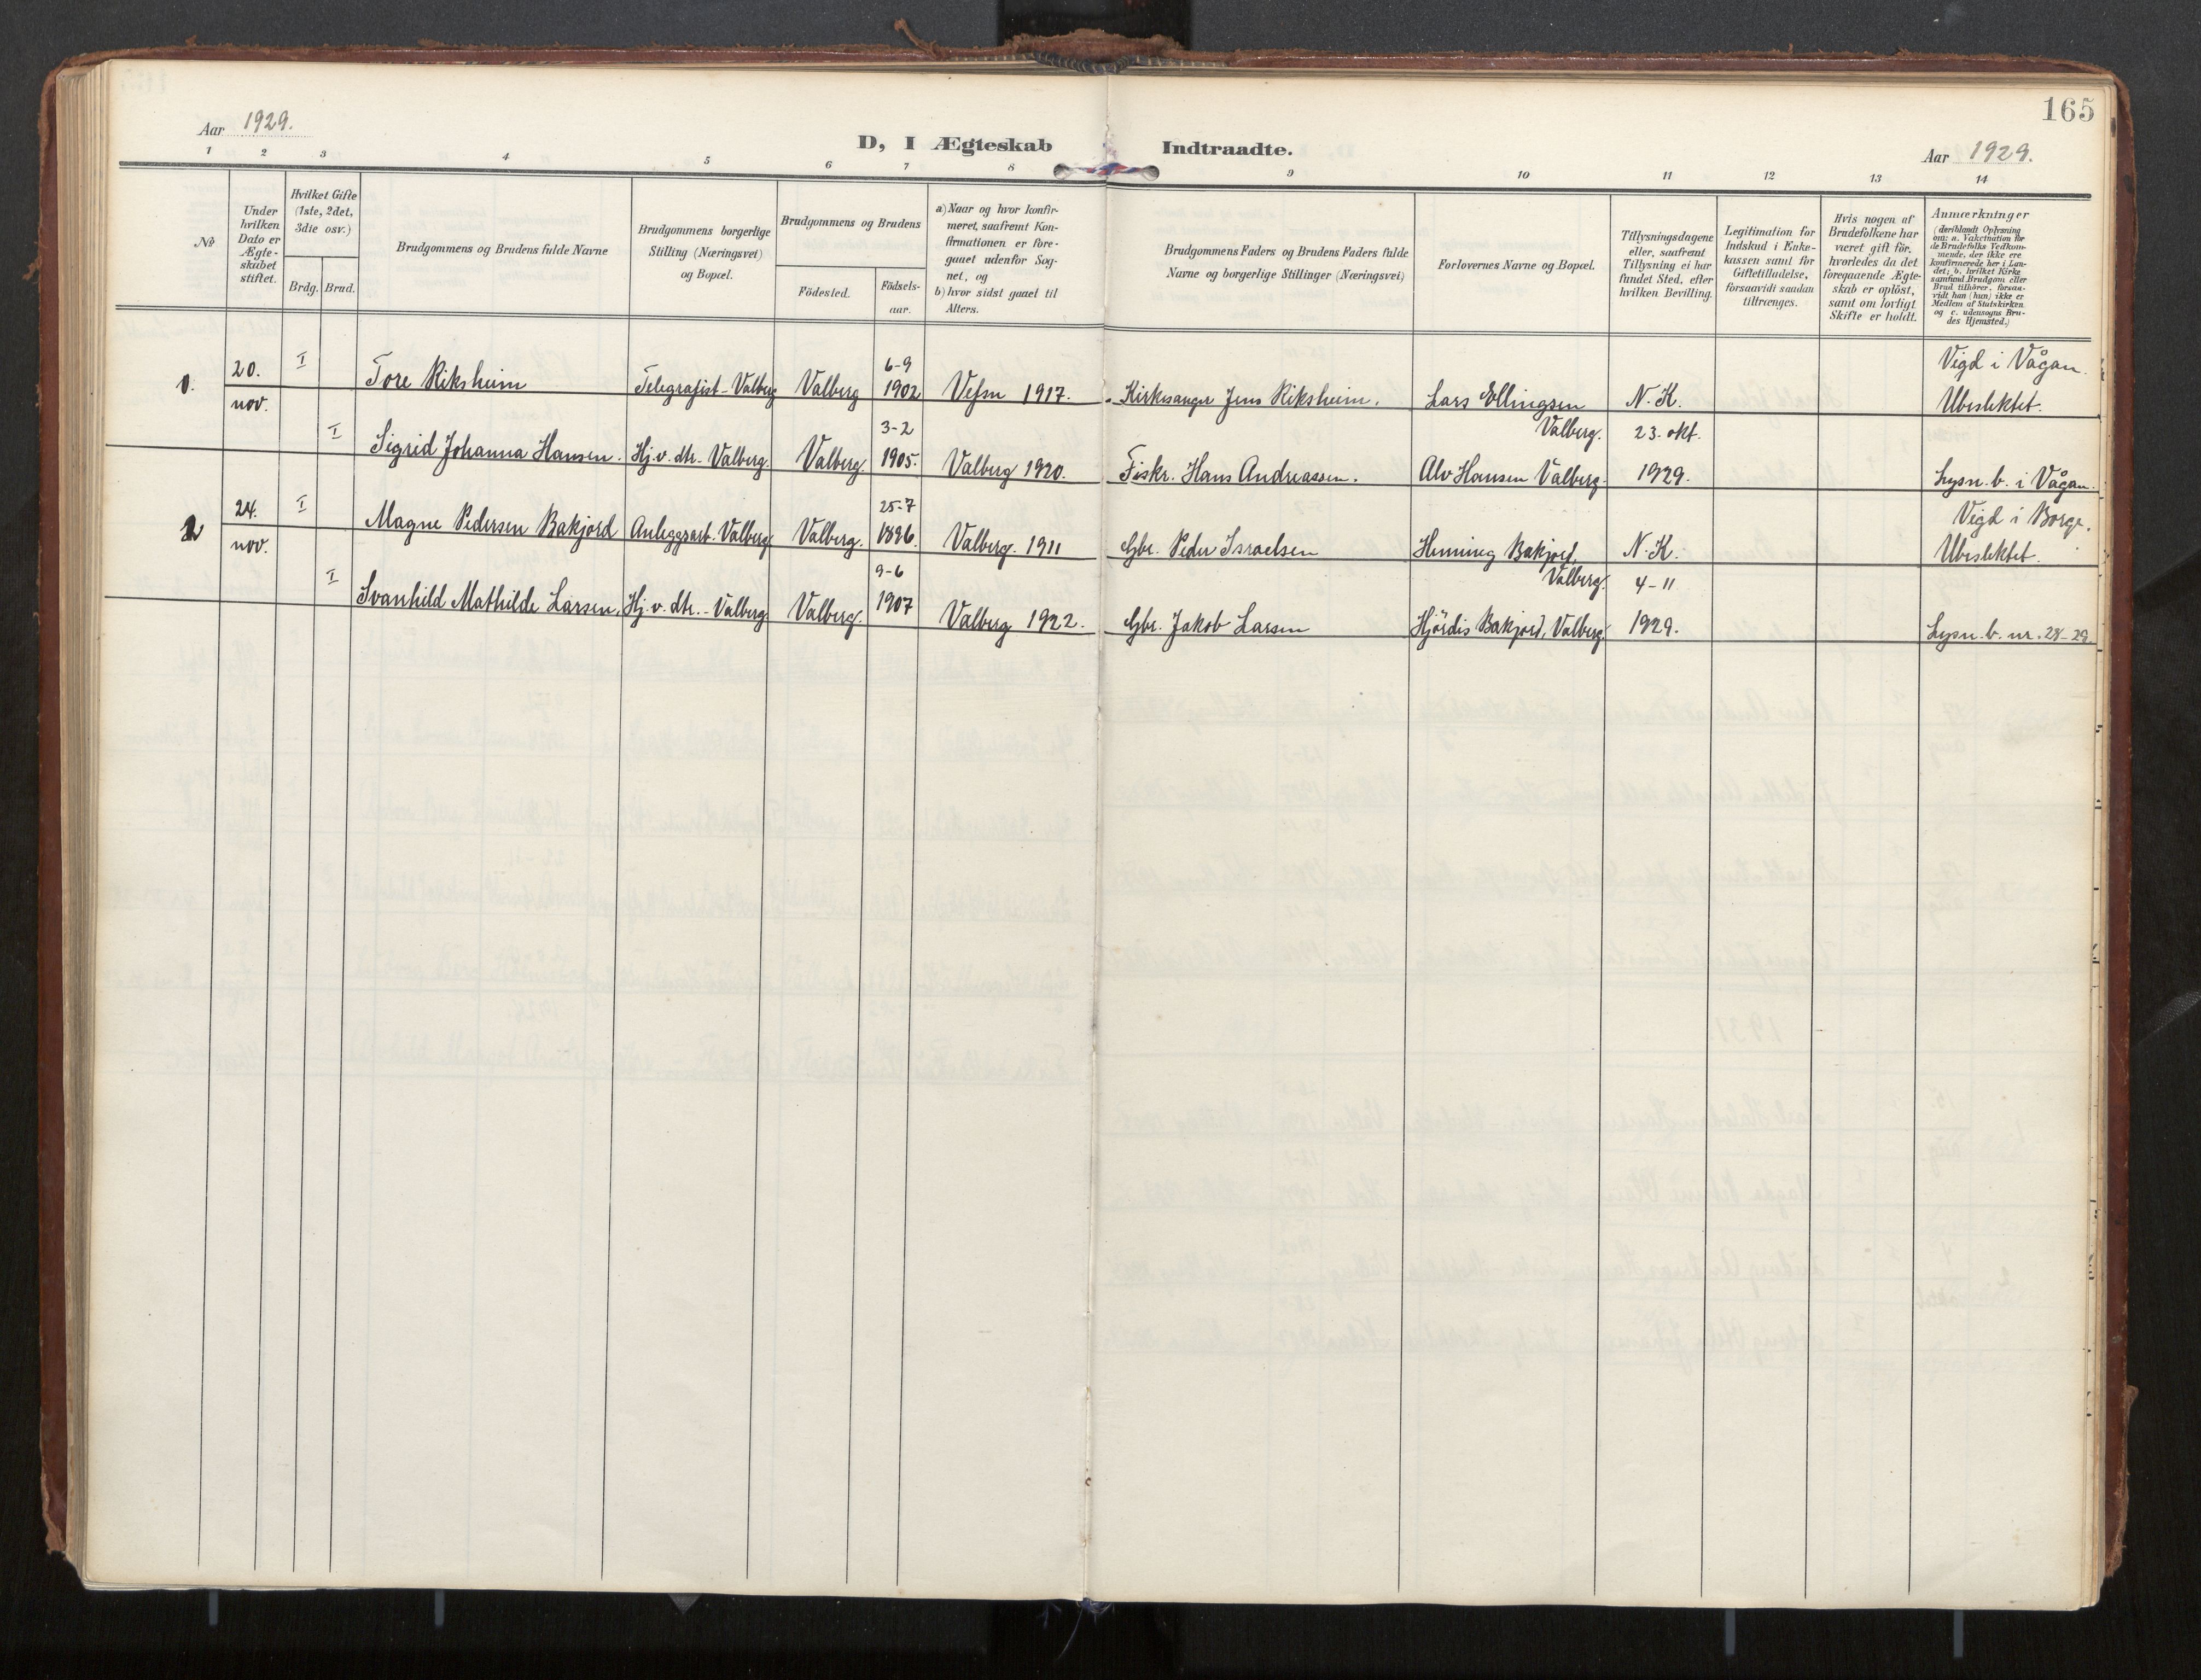 165
Aar 1929.
D, I Ægteskab Indtraadte.
Aar 1929.
1 2 3 4 5 6 7 8 9 10 11 12 13 14
No
Under
hvilken
Dato er
Ægte-
skabet
stiftet.
Hvilket Gifte
(1ste, 2det,
3die osv.)
Brdg. Brud.
Brudgommens og Brudens fulde Navne
Brudgommens borgerlige
Stilling (Næringsvei)
og Bopæl.
Brudgommens og Brudens
Födested.
Födsels-
aar.
a) Naar og hvor konfir-
meret, saafremt Kon-
firmationen er fore-
gaaet udenfor Sog-
net, og
b) hvor sidst gaaet til
Alters.
Brudgommens Faders og Brudens Faders fulde
Navne og borgerlige Stillinger (Næringsvei)
Forlovernes Navne og Bopæl.
Tillysningsdagene
eller, saafremt
Tillysning ei har
fundet Sted, efter
hvilken Bevilling.
Legitimation for
Indskud i Enke-
kassen samt for
Giftetilladelse,
forsaavidt saadan
tiltrænges.
Hvis nogen af
Brudefolkene har
været gift før,
hvorledes da det
foregaaende Ægte-
skab er oplöst,
samt om lovligt
Skifte er holdt.
Anmærkninger
(deriblandt Oplysning
om: a. Vakcination for
de Brudefolks Vedkom-
mende, der ikke ere
konfirmerede her i Lan-
det; b. hvilket Kirke
samfund Brudgom eller
Brud tilhører, forsaa-
vidt han (hun) ikke er
Medlem af Statskirken
og c. udensogns Bru-
des Hjemsted.)
1. 20. nov. I Tore Riksheim Telegrafist - Valberg Valberg 6-9 1902 Vefsn 1917. Kirkesanger Jens Riksheim. Lars Ellingsen Valberg. N. K. Vigd i Vågan. Ubeslektet.
I Sigrid Johanna Hansen. Hj. v. dtr. - Valberg. Valberg. 3-2 1905. Valberg 1920. Fiskr. Hans Andreassen. Alv Hansen Valberg. 23. okt. 1929. Lysn. b. i Vågan.
2 24. nov. I Magne Pedersen Bakjord Anleggsarb. Valberg. Valberg. 25-7 1896. Valberg. 1911 Gbr. Peder Israelsen Henning Bakjord, Valberg. N. K. Vigd i Borge. Ubeslektet.
I Svanhild Mathilde Larsen. Hj. v. dtr. - Valberg. Valberg. 9-6 1907 Valberg 1922. Gbr. Jakob Larsen Hjördis Bakjord, Valberg. 4-11 1929. Lysn. b. nr. 28-29.